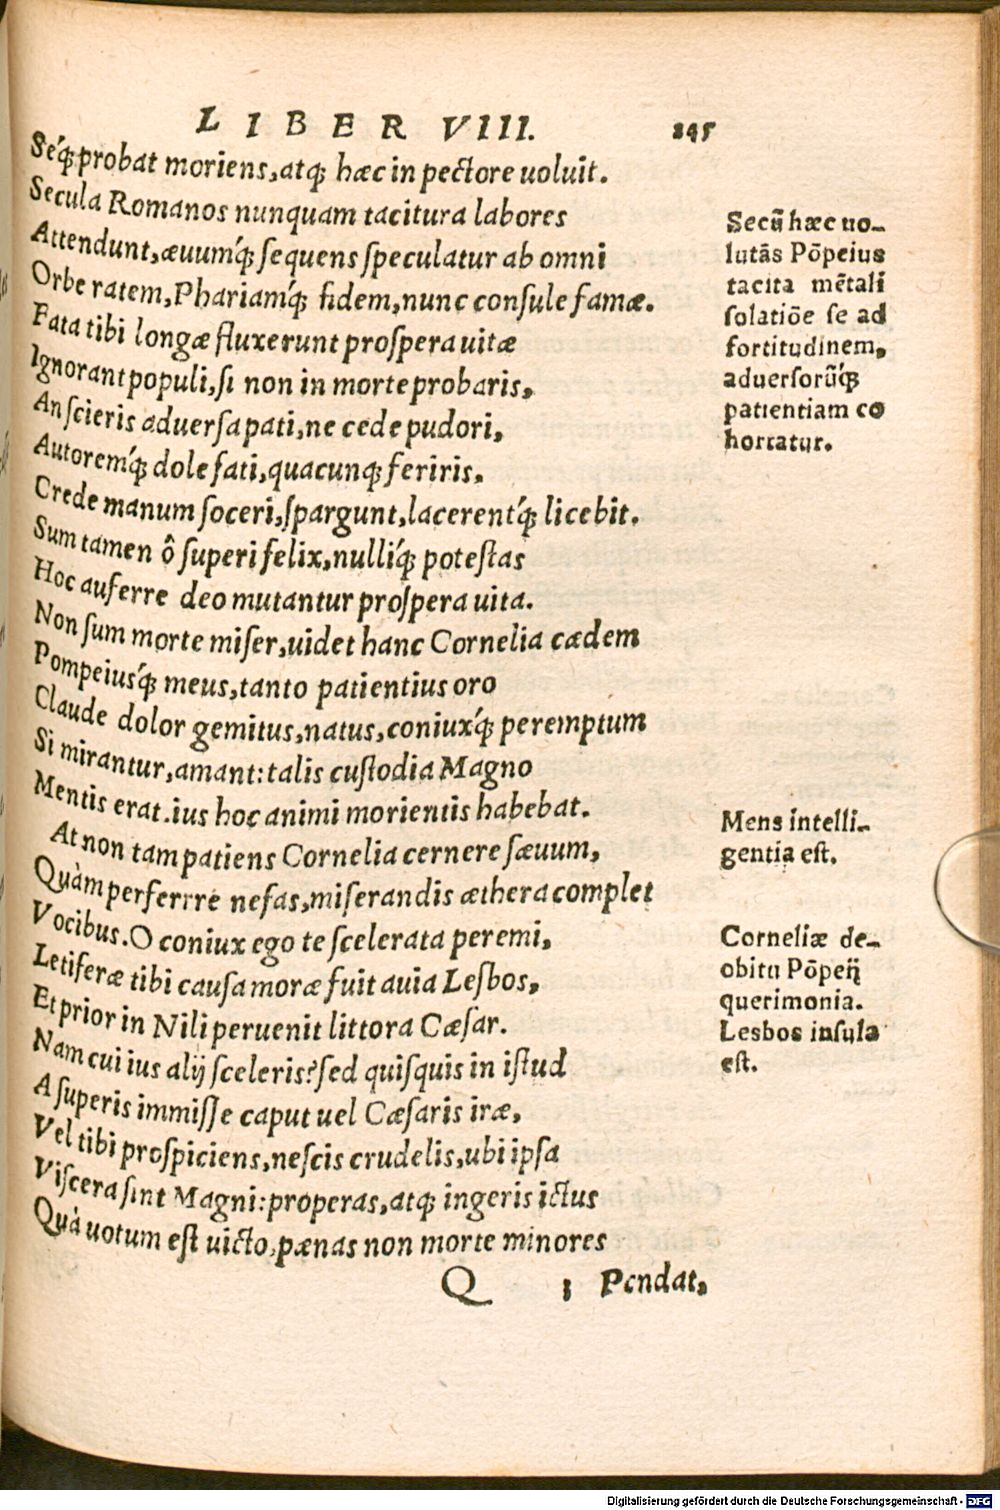 LIBER VIII. 245
Seq́ꝫ probat moriens, atqꝫ hæc in pectore uoluit.
Secula Romanos nunquam tacitura labores
Attendunt, æuumq́ꝫ sequens speculatur ab omni
Orbe ratem, Phariamq́ꝫ fidem, nunc consule famæ.
Fata tibi longæ fluxerunt prospera uitæ
Ignorant populi, si non in morte probaris,
An scieris aduersa pati, ne cede pudori,
Autoremq́ꝫ dole fati, quacunqꝫ feriris,
Crede manum soceri, spargunt, lacerentq́ꝫ licebit.
Sum tamen ô superi felix, nulliq́ꝫ potestas
Hoc auferre deo mutantur prospera uita.
Non sum morte miser, uidet hanc Cornelia cædem
Pompeiusq́ꝫ meus, tanto patientius oro
Claude dolor gemitus, natus, coniuxq́ꝫ peremptum
Si mirantur, amant: talis custodia Magno
Mentis erat. ius hoc animi morientis habebat.
At non tam patiens Cornelia cernere sæuum,
Quàm perferrre nefas, miserandis æthera complet
Vocibus. O coniux ego te scelerata peremi,
Letiferæ tibi causa moræ fuit auia Lesbos,
Et prior in Nili peruenit littora Cæsar.
Nam cui ius alij sceleris? sed quisquis in istud
A superis immisse caput uel Cæsaris iræ,
Vel tibi prospiciens, nescis crudelis, ubi ipsa
Viscera sint Magni: properas, atqꝫ ingeris ictus
Quà uotum est uicto, pænas non morte minores
Q 1 Pendat,
Secū hæc uo-
lutās Pōpeius
tacita mētali
solatiōe se ad
fortitudinem,
aduersorūq́ꝫ
patientiam co
hortatur.
Mens intelli-
gentia est.
Corneliæ de-
obitu Pōpeij
querimonia.
Lesbos insula
est.
Digitalisierung gefördert durch die Deutsche Forschungsgemeinschaft - DFG